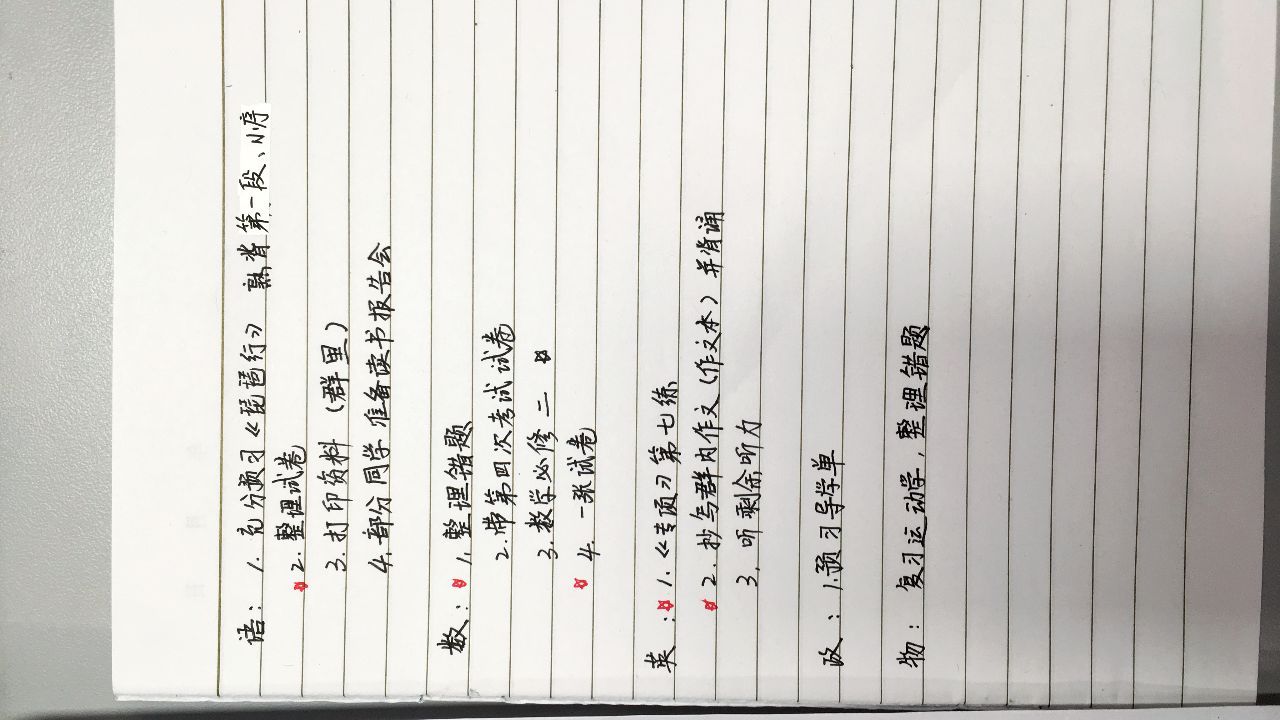 语: 1. 充分预习《琵琶行》 熟背第一段、小序
☆2. 整理试卷
3. 打印资料 (群里)
4. 部分同学准备读书报告会
数: ☆1. 整理错题
2. 带第四次考试试卷
3. 数学必修二 ☆
☆4. 一张试卷
英: ☆1.《专项》第七练
☆2. 抄写群内作文(作文本)并背诵
3. 听剩余听力
政: 1. 预习导学单
物: 复习运动学, 整理错题